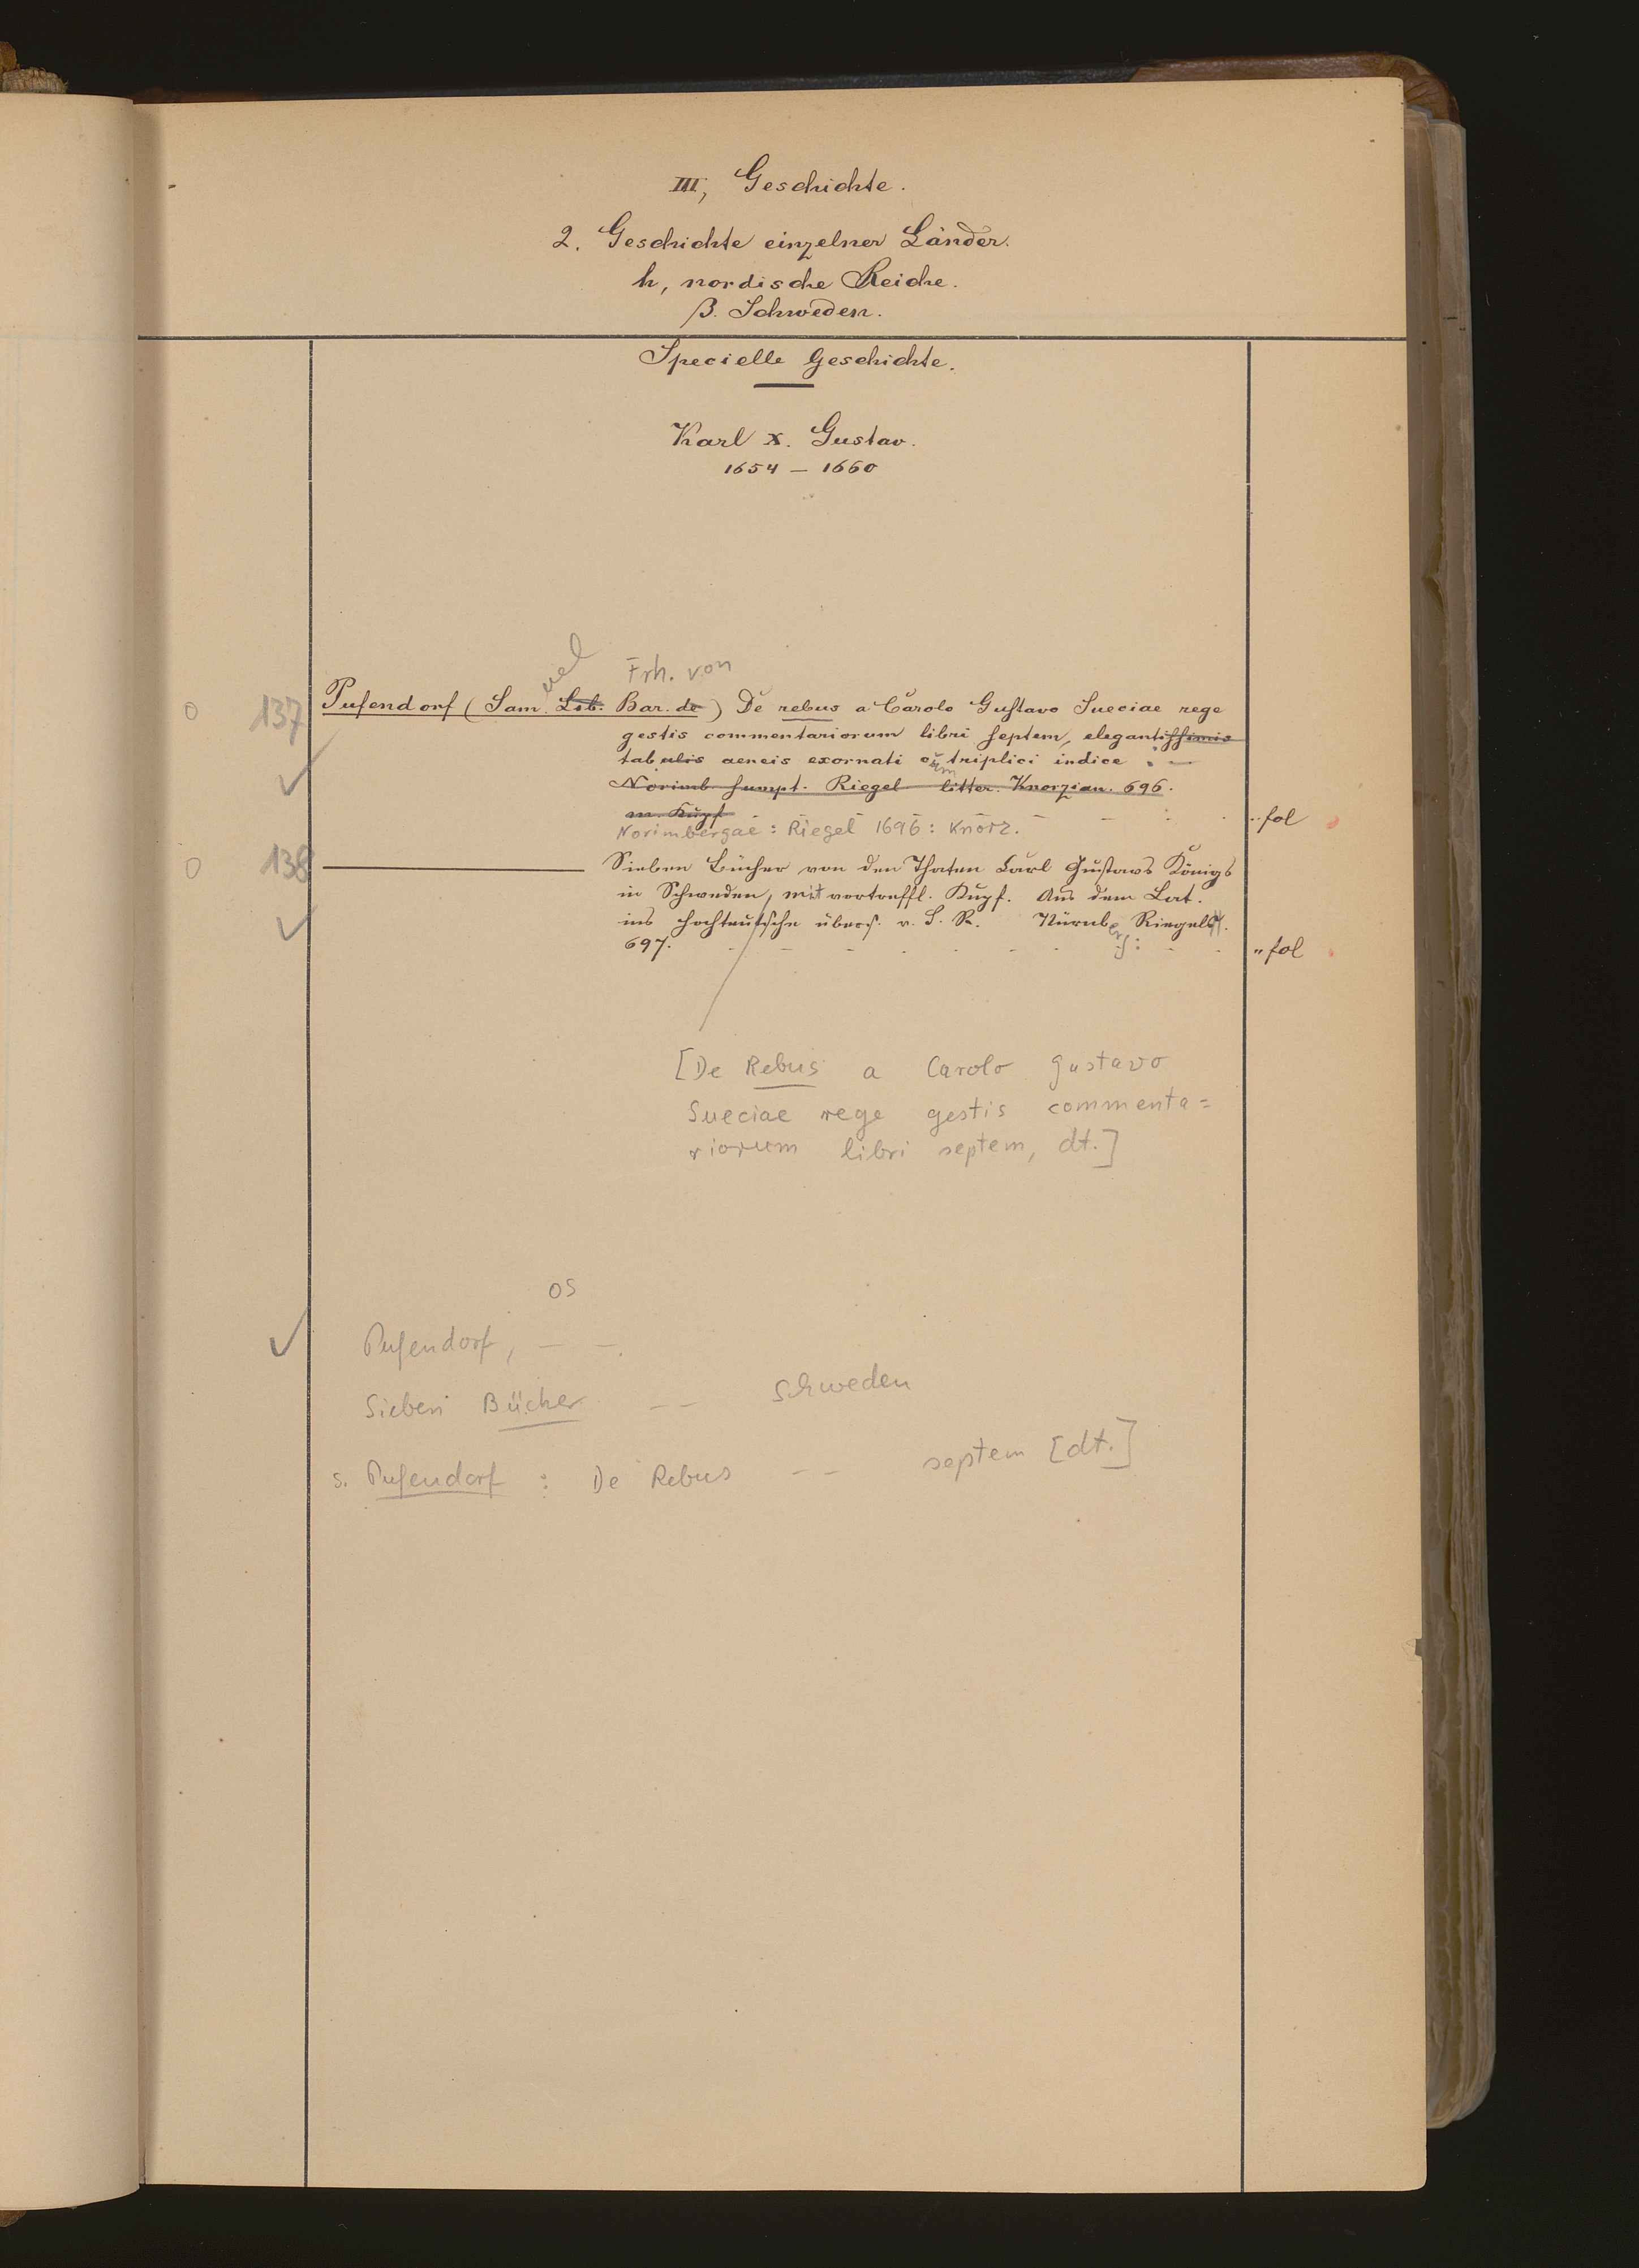 III, Geschichte.
2. Geschichte einzelner Länder.
h, nordische Reiche.
β. Schweden.
Specielle Geschichte.
Karl X. Gustav.
1654 – 1660
uel Frh. von
0 137 Pufendorf (Sam. Lib. Bar. de) De rebus a Carolo Gustavo Sueciae rege
gestis commentariorum libri septem, elegantissimis
tabulis aeneis exornati cum triplici indice . –
Norimb. sumpt. Riegel litter. Knorzian. 696.
m. Kupf
Norimbergae: Riegel 1696: Knorz. " fol
0 138 ——— Sieben Bücher von den Thaten Carl Gustavs Königs
in Schweden, mit vortreffl. Kupf. Aus dem Lat.
ins Hochteutsche übers. v. S. R. Nürnberg: Riegel
697. " fol
[De Rebus a Carolo Gustavo
Sueciae rege gestis commenta=
riorum libri septem, dt.]
OS
Pufendorf, – –.
Sieben Bücher – – Schweden
s. Pufendorf : De Rebus – – septem [dt.]